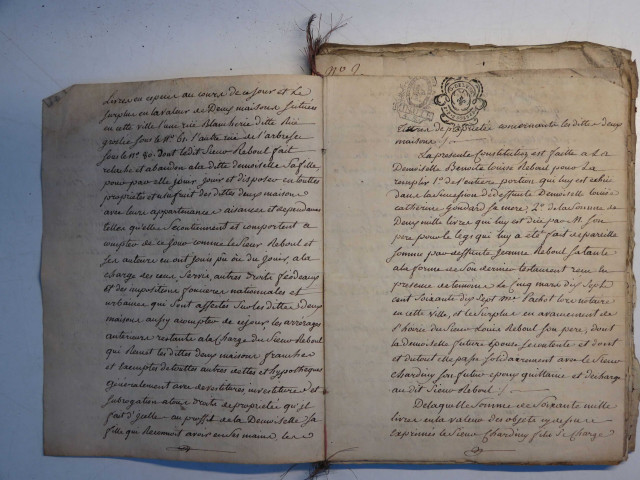 Livres en especes au cours de ce jour et Le
Surplus en la valeur de Deux maisons scituées
en cette ville l'une rüe Blancherie ditte Rüe
sous le No. 61. l'autre rüe de l'arbresle
sous le No. 90. dont le dit Sieur Reboul fait
relache et abandon a la ditte demoiselle sa fille
pour par elle jouir, jouir et disposer en touttes
proprietés et usufruit des dittes Deux maisons
avec leurs appartenances aisances et dependances
telles qu'elles se contiennent et comportent a
compter de ce jour comme le Sieur Reboul et
ses auteurs en ont jouis pû ou dû jouir, a la
charge des cens Servis, autres Droits féodeaux
et des impositions foncieres nationnalles et
urbaines qui Sont affectés Sur les dittes Deux
maisons aussy a compter de ce jour, les arrerages
anterieurs restants a la Charge du Sieur Reboul
qui Remet les dittes deux maisons franches
et Exemptes de touttes autres dettes et hypotheques
generalement avec desvestitures investitures et
subrogation a tous droits de proprietée qu'il
fait d'icelles au proffit de la Demoiselle Sa
fille qui Reconnoit avoir en ses mains, les
No. 9.
tittres de proprieté concernants les dittes deux
maisons
La presente Constitution est faitte a La
Demoiselle Benoite Louise Reboul pour La
remplir 1o. de l'entiere portion qui luy est echüe
dans la Succession de deffunte Demoiselle Louise
catherine Goudard sa mere, 2o. de la Somme de
Deux mille livres qui luy est düe par M. Son
pere pour le legs qui luy a été fait de pareille
Somme par deffunte Jeanne Reboul sa tante
a la forme de son dernier testament reçu en
presence de temoins Le Cinq mars dix Sept
cent Soixante dix Sept par Me. Pachot Lors notaire
en cette ville, et le Surplus en avancement de
l'hoirie du Sieur Louis Reboul Son pere, dont
la demoiselle future epouse se contente et dont
et du tout elle passe Solidairement avec le Sieur
Chardiny Son futur epoux quittance et decharge
au dit Sieur Reboul
De laquelle Somme de Soixante mille
livres en la valeur des objets cy dessus
exprimés le Sieur Chardiny fils Se Charge